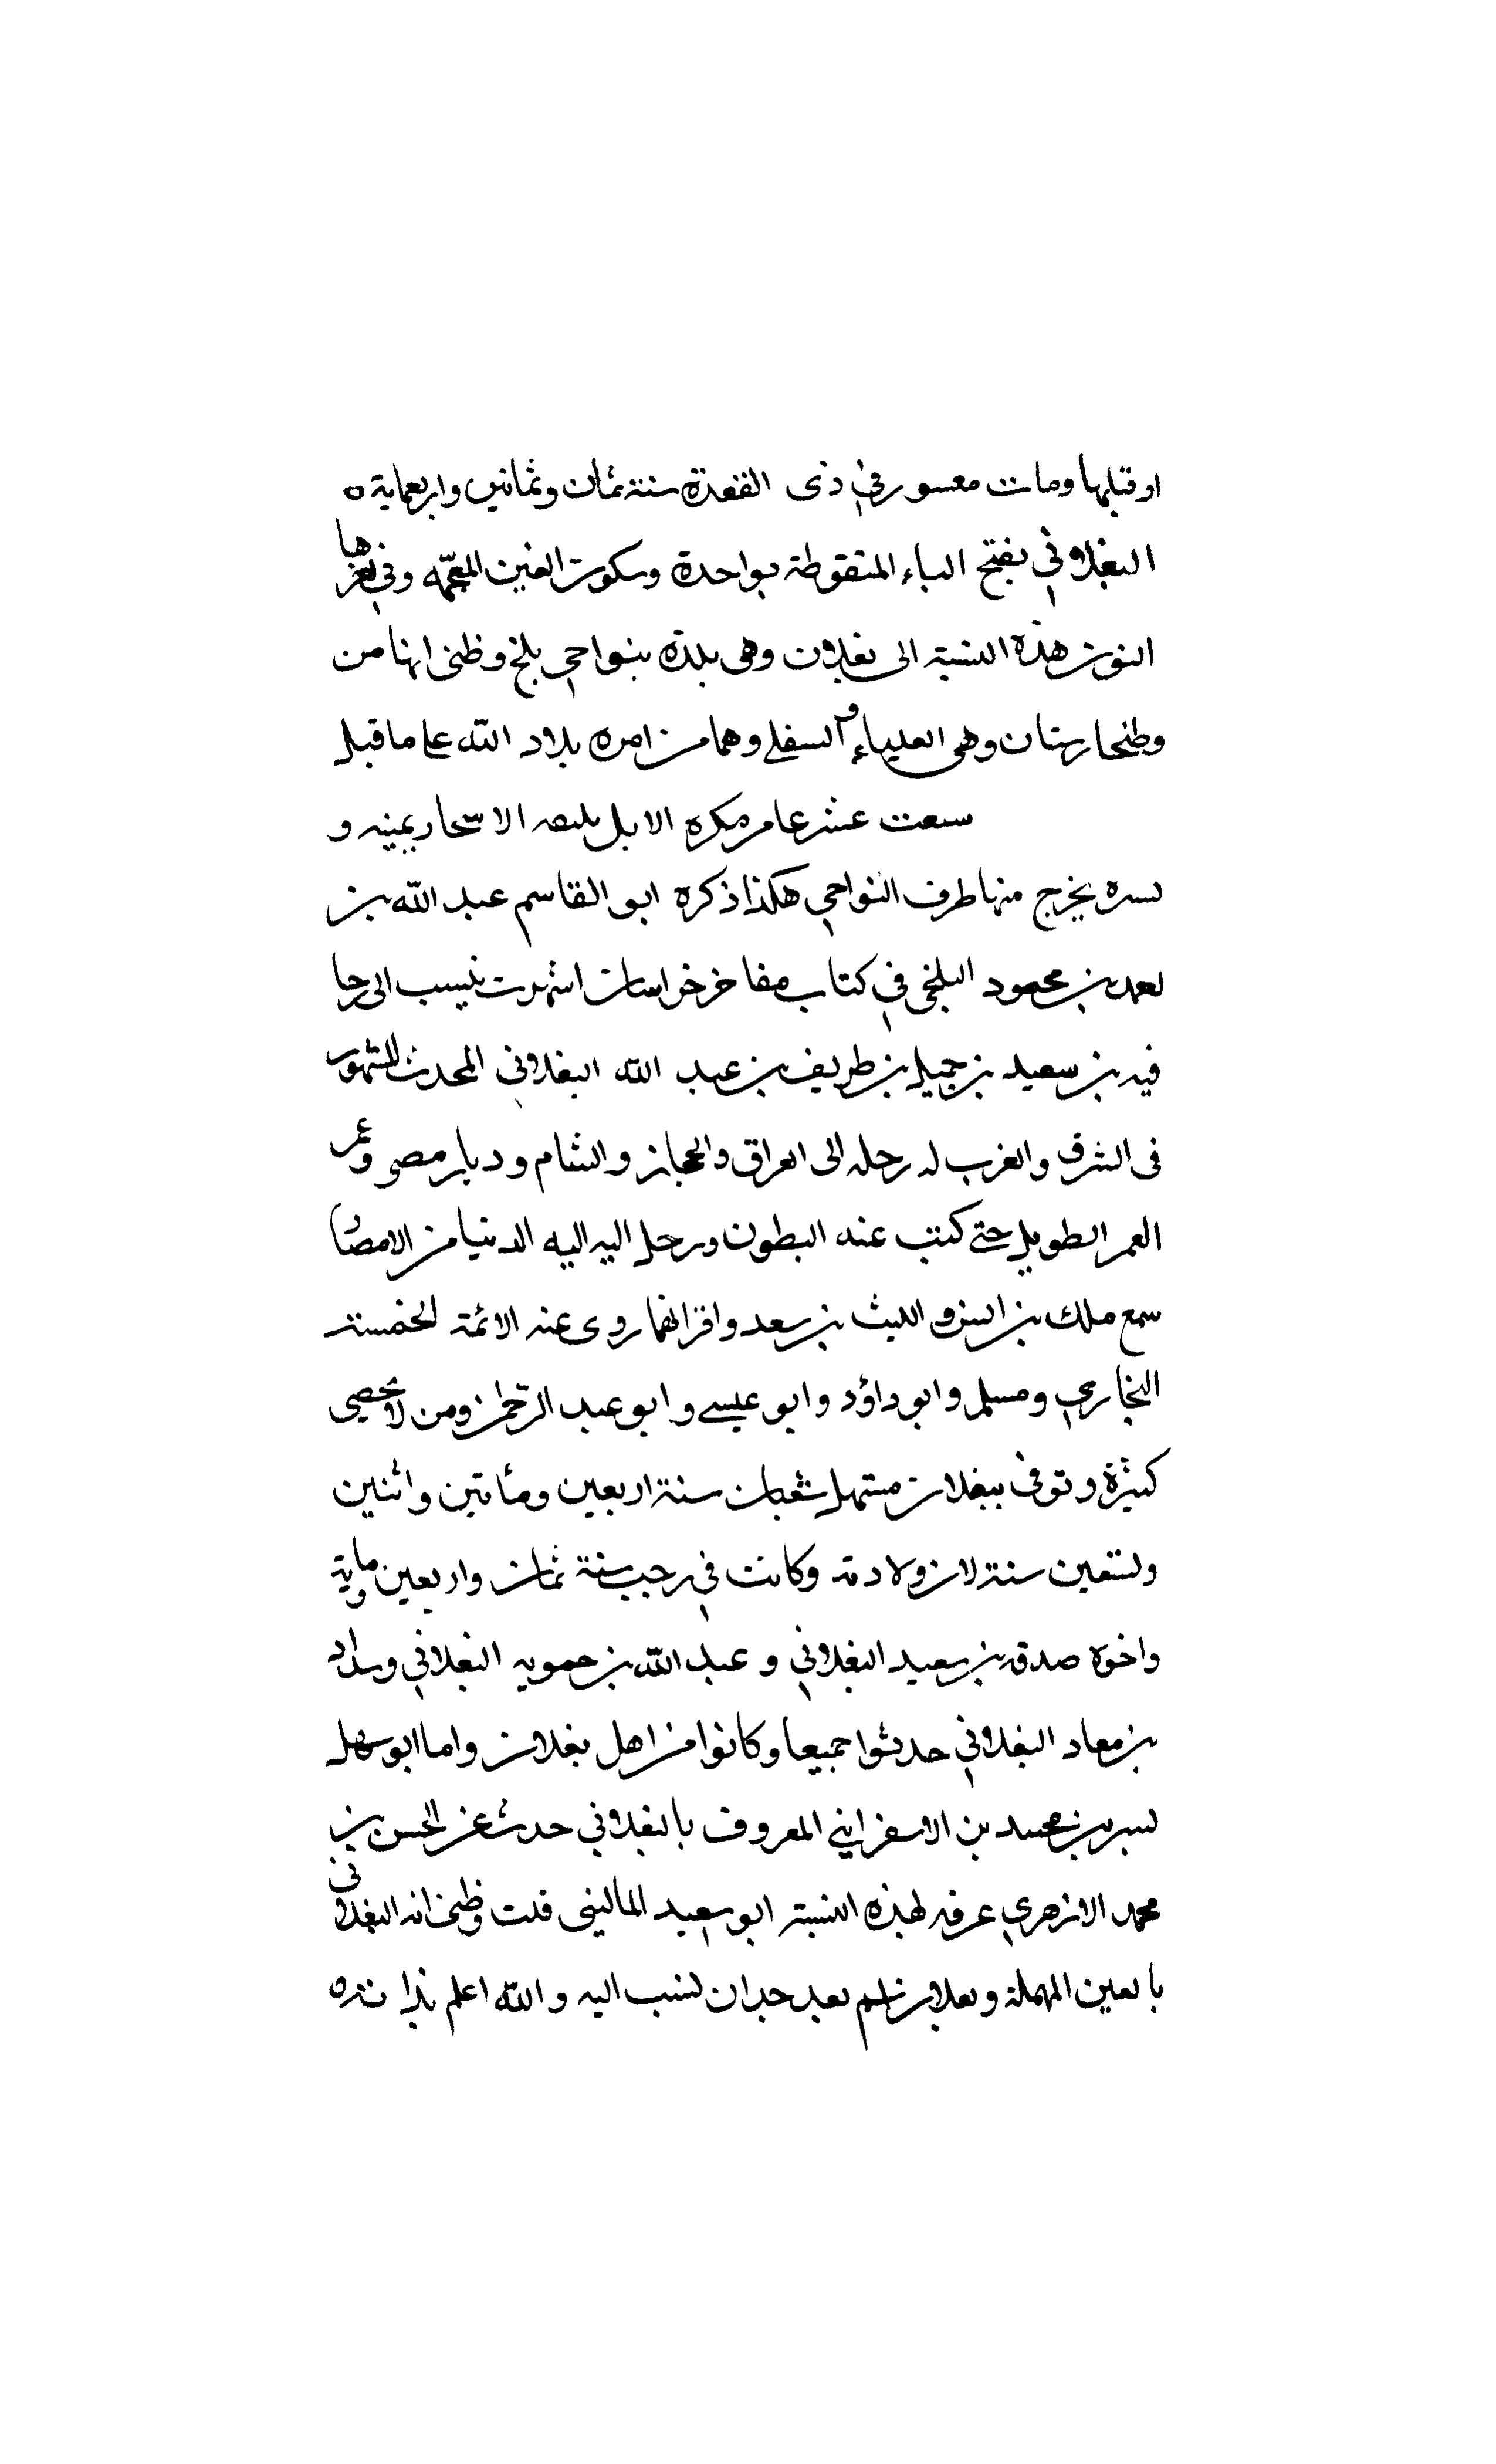 او قبلها ومات معسور في ذى القعدة سنة ثمان وثمانين واربعماية ه
البغلاني بفتح الباء المنقوطة بواحدة وسكون الغين المعجمه وفي اخرها
النون هذه النسبة الى بغلان وهى بلدة بنواحي بلخ وظنى انها من
وطخارستان وهى العلياء والسفلے وهما من امره بلاد الله على ما قبل
سعت عشر عامر مكره الابل الاسحار يمينه و
لسره يخرج منها طرف النواحي هكذا ذكره ابو القاسم عبد الله بن
بن محمود البلخى في كتاب مفاخر خراسان اشتهرت بنسب الى رجا
فيه بن سعيد بن جميل بن طريف بن عبد الله البغلاني المحدث المشهور
فى الشرق والغرب له رحله الى العراق والحجاز والشام وديار مصر وعمر
العمر الطويل حتى كتب عنه البطون ورحل اليه اليه الدنيا من الامصار
سمع ملك بن انس و الليث بن سعد واقرانهما روى عنه الائمة الخمسة
البخاري ومسلم وابو داؤد وابو عيسے وابو عبد الرحمن ومن لا يحصى
كثيرة وتوفى ببغلان مستهل شعبان سنة اربعين ومأتين واثنين
وتسعين سنة لان ولادته وكانت في رجب سنة ثمان واربعين وماية
واخوه صدقه بن سعيد البغلاني و عبد الله بن حمويه البغلاني وسداد
بن معاد البغلاني حدثوا جميعا وكانوا من اهل بغلان واما ابو سهل
بن محمد بن الاسفرايني المعروف بالبغلاني حدث عن الحسن بن
محمد الازهري عرفه لهذه النسبة ابو سعيد الماليني قلت وظنى انه البغلانى
بالعين المهملة وبعلان اسم بعد حدان لنسب اليه والله اعلم